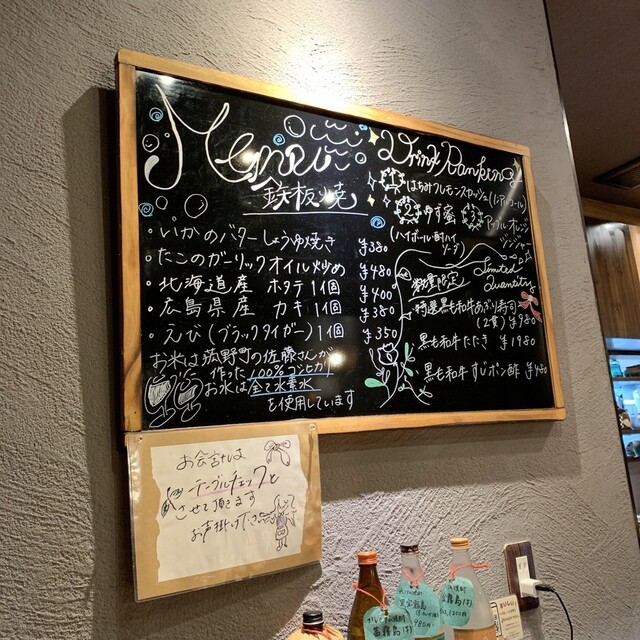 Menu
鉄板焼
・いかのバターしょうゆ焼き ¥380
・たこのガーリックオイル炒め ¥480
・北海道産 ホタテ1個 ¥400
・広島県産 カキ1個 ¥380
・えび(ブラックタイガー)1個 ¥350
お米は筑野町の佐藤さんが
作った100%コシヒカリ
お水は全て水素水
を使用しています
Drink Ranking
1 はちみつレモンスカッシュ(ノンアルコール)
2 ゆず蜜
(ハイボール・酎ハイ・
ソーダ)
3 アップルオレンジ
ジンジャー
数量限定
Limited
Quantity
特選黒毛和牛あぶり寿司
(2貫) ¥980
黒毛和牛たたき ¥1980
黒毛和牛すじポン酢 ¥480
お会計は
テーブルチェックと
させて頂きます
お声掛け下さい
茜霧島(芋)